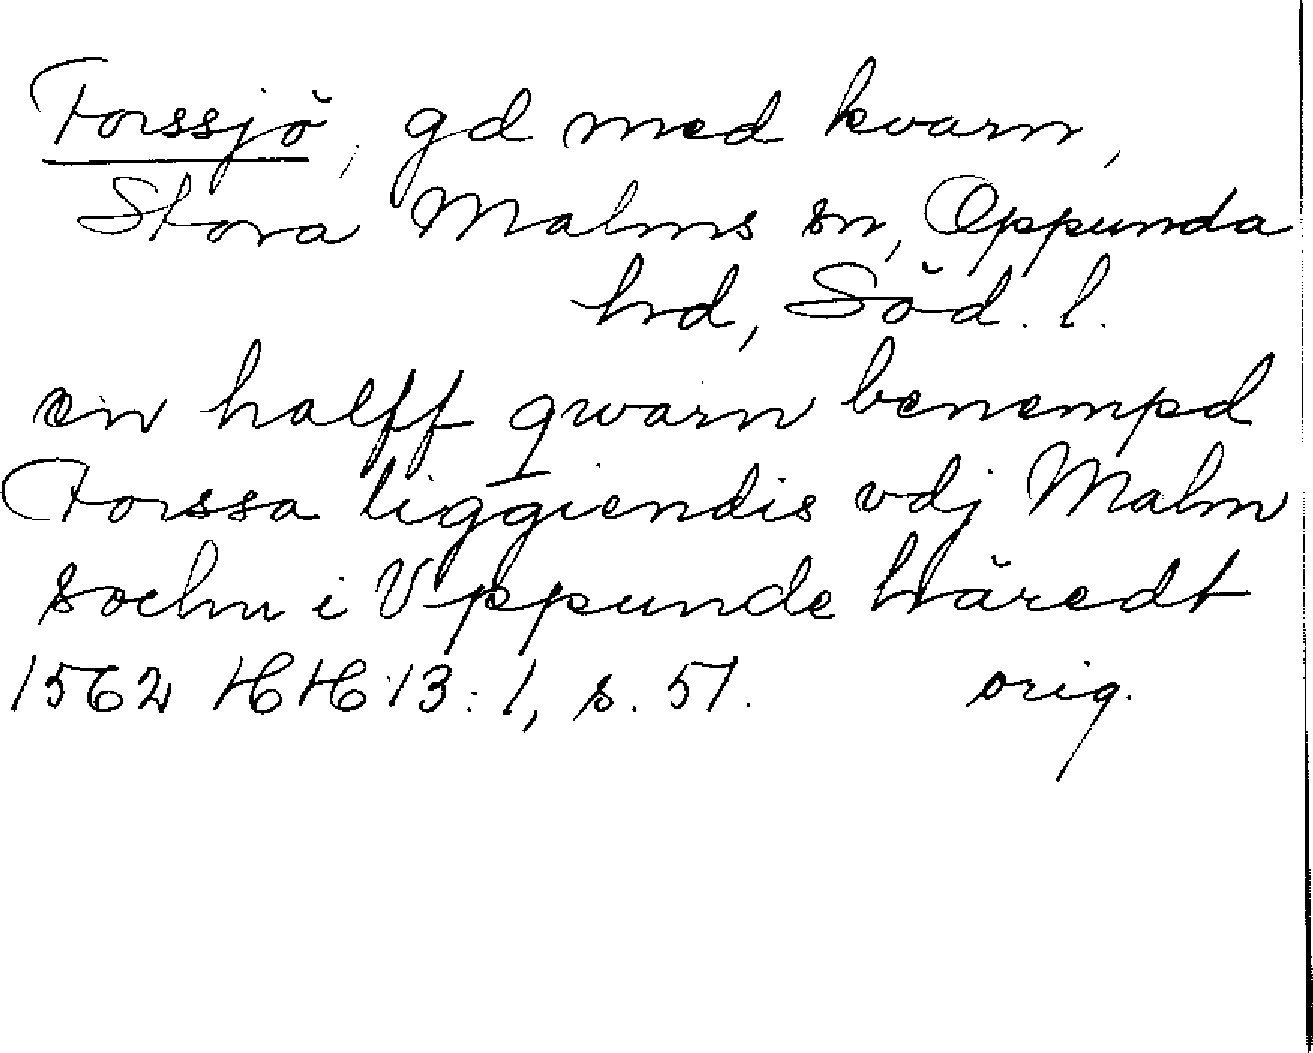 Forssjö, gd med kvarn,
Stora Malms sn, Oppunda
hd, Söd. l.
en halff qwarn benempd
Forssa liggiendis vdj Malm
sochn i Vppunde häredt
1562 HH 13:1, s. 51. orig.